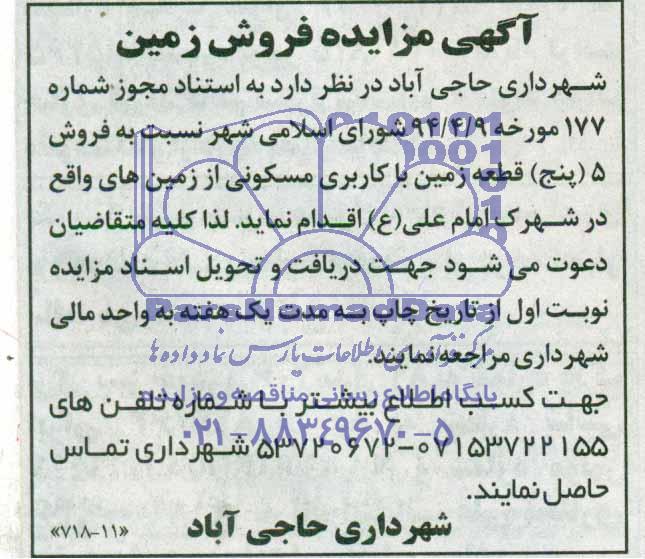 آگهی مزایده فروش زمین
شهرداری حاجی آباد در نظر دارد به استناد مجوز شماره
۱۷۷ مورخه ۹۴/۴/۹ شورای اسلامی شهر نسبت به فروش
۵ (پنج) قطعه زمین با کاربری مسکونی از زمین های واقع
در شهرک امام علی(ع) اقدام نماید. لذا کلیه متقاضیان
دعوت می شود جهت دریافت و تحویل اسناد مزایده
نوبت اول از تاریخ چاپ به مدت یک هفته به واحد مالی
شهرداری مراجعه نمایند.
جهت کسب اطلاع بیشتر با شماره تلفن های
۰۷۱۵۳۷۲۲۱۵۵-۵۳۷۲۰۶۷۲ شهرداری تماس
حاصل نمایند.
شهرداری حاجی آباد
«۷۱۸-۱۱»
ParsNamadData
مرکز فرآوری اطلاعات پارس نماد داده ها
پایگاه اطلاع رسانی مناقصه و مزایده
۰۲۱-۸۸۳۴۹۶۷۰-۵